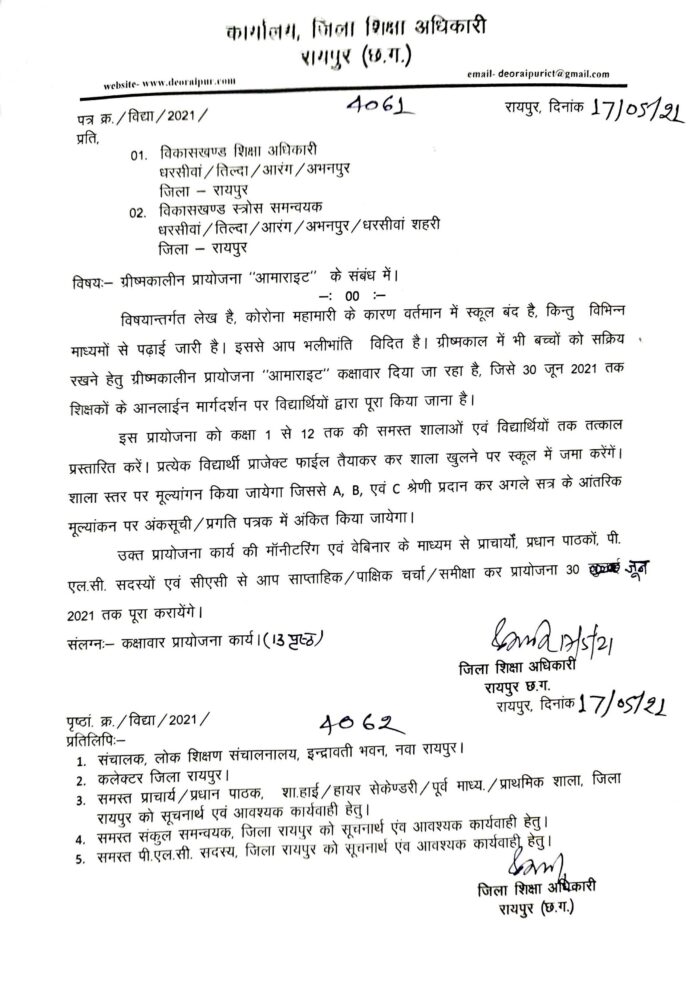 कार्यालय, जिला शिक्षा अधिकारी
रायपुर (छ.ग.)
website- www.deoraipur.com
email- deoraipurict@gmail.com
पत्र क्र./विद्या/2021/ 4061 रायपुर, दिनांक 17/05/21
प्रति,
01. विकासखण्ड शिक्षा अधिकारी
धरसीवां/तिल्दा/आरंग/अभनपुर
जिला – रायपुर
02. विकासखण्ड स्त्रोस समन्वयक
धरसीवां/तिल्दा/आरंग/अभनपुर/धरसीवां शहरी
जिला – रायपुर
विषयः– ग्रीष्मकालीन प्रायोजना "आमाराइट" के संबंध में।
–: 00 :–
विषयान्तर्गत लेख है, कोरोना महामारी के कारण वर्तमान में स्कूल बंद है, किन्तु विभिन्न
माध्यमों से पढ़ाई जारी है। इससे आप भलीभांति विदित है। ग्रीष्मकाल में भी बच्चों को सक्रिय
रखने हेतु ग्रीष्मकालीन प्रायोजना "आमाराइट" कक्षावार दिया जा रहा है, जिसे 30 जून 2021 तक
शिक्षकों के आनलाईन मार्गदर्शन पर विद्यार्थियों द्वारा पूरा किया जाना है।
इस प्रायोजना को कक्षा 1 से 12 तक की समस्त शालाओं एवं विद्यार्थियों तक तत्काल
प्रस्तारित करें। प्रत्येक विद्यार्थी प्राजेक्ट फाईल तैयाकर कर शाला खुलने पर स्कूल में जमा करेंगें।
शाला स्तर पर मूल्यांगन किया जायेगा जिससे A, B, एवं C श्रेणी प्रदान कर अगले सत्र के आंतरिक
मूल्यांकन पर अंकसूची/प्रगति पत्रक में अंकित किया जायेगा।
उक्त प्रायोजना कार्य की मॉनीटरिंग एवं वेबिनार के माध्यम से प्राचार्यो, प्रधान पाठकों, पी.
एल.सी. सदस्यों एवं सीएसी से आप साप्ताहिक/पाक्षिक चर्चा/समीक्षा कर प्रायोजना 30 जून
2021 तक पूरा करायेंगे।
संलग्नः– कक्षावार प्रायोजना कार्य। (13 पृष्ठ)
17/5/21
जिला शिक्षा अधिकारी
रायपुर छ.ग.
रायपुर, दिनांक 17/05/21
पृष्ठां. क्र./विद्या/2021/ 4062
प्रतिलिपिः–
1. संचालक, लोक शिक्षण संचालनालय, इन्द्रावती भवन, नवा रायपुर।
2. कलेक्टर जिला रायपुर।
3. समस्त प्राचार्य/प्रधान पाठक, शा.हाई/हायर सेकेण्डरी/पूर्व माध्य./प्राथमिक शाला, जिला
रायपुर को सूचनार्थ एवं आवश्यक कार्यवाही हेतु।
4. समस्त संकुल समन्वयक, जिला रायपुर को सूचनार्थ एंव आवश्यक कार्यवाही हेतु।
5. समस्त पी.एल.सी. सदस्य, जिला रायपुर को सूचनार्थ एंव आवश्यक कार्यवाही हेतु।
जिला शिक्षा अधिकारी
रायपुर (छ.ग.)